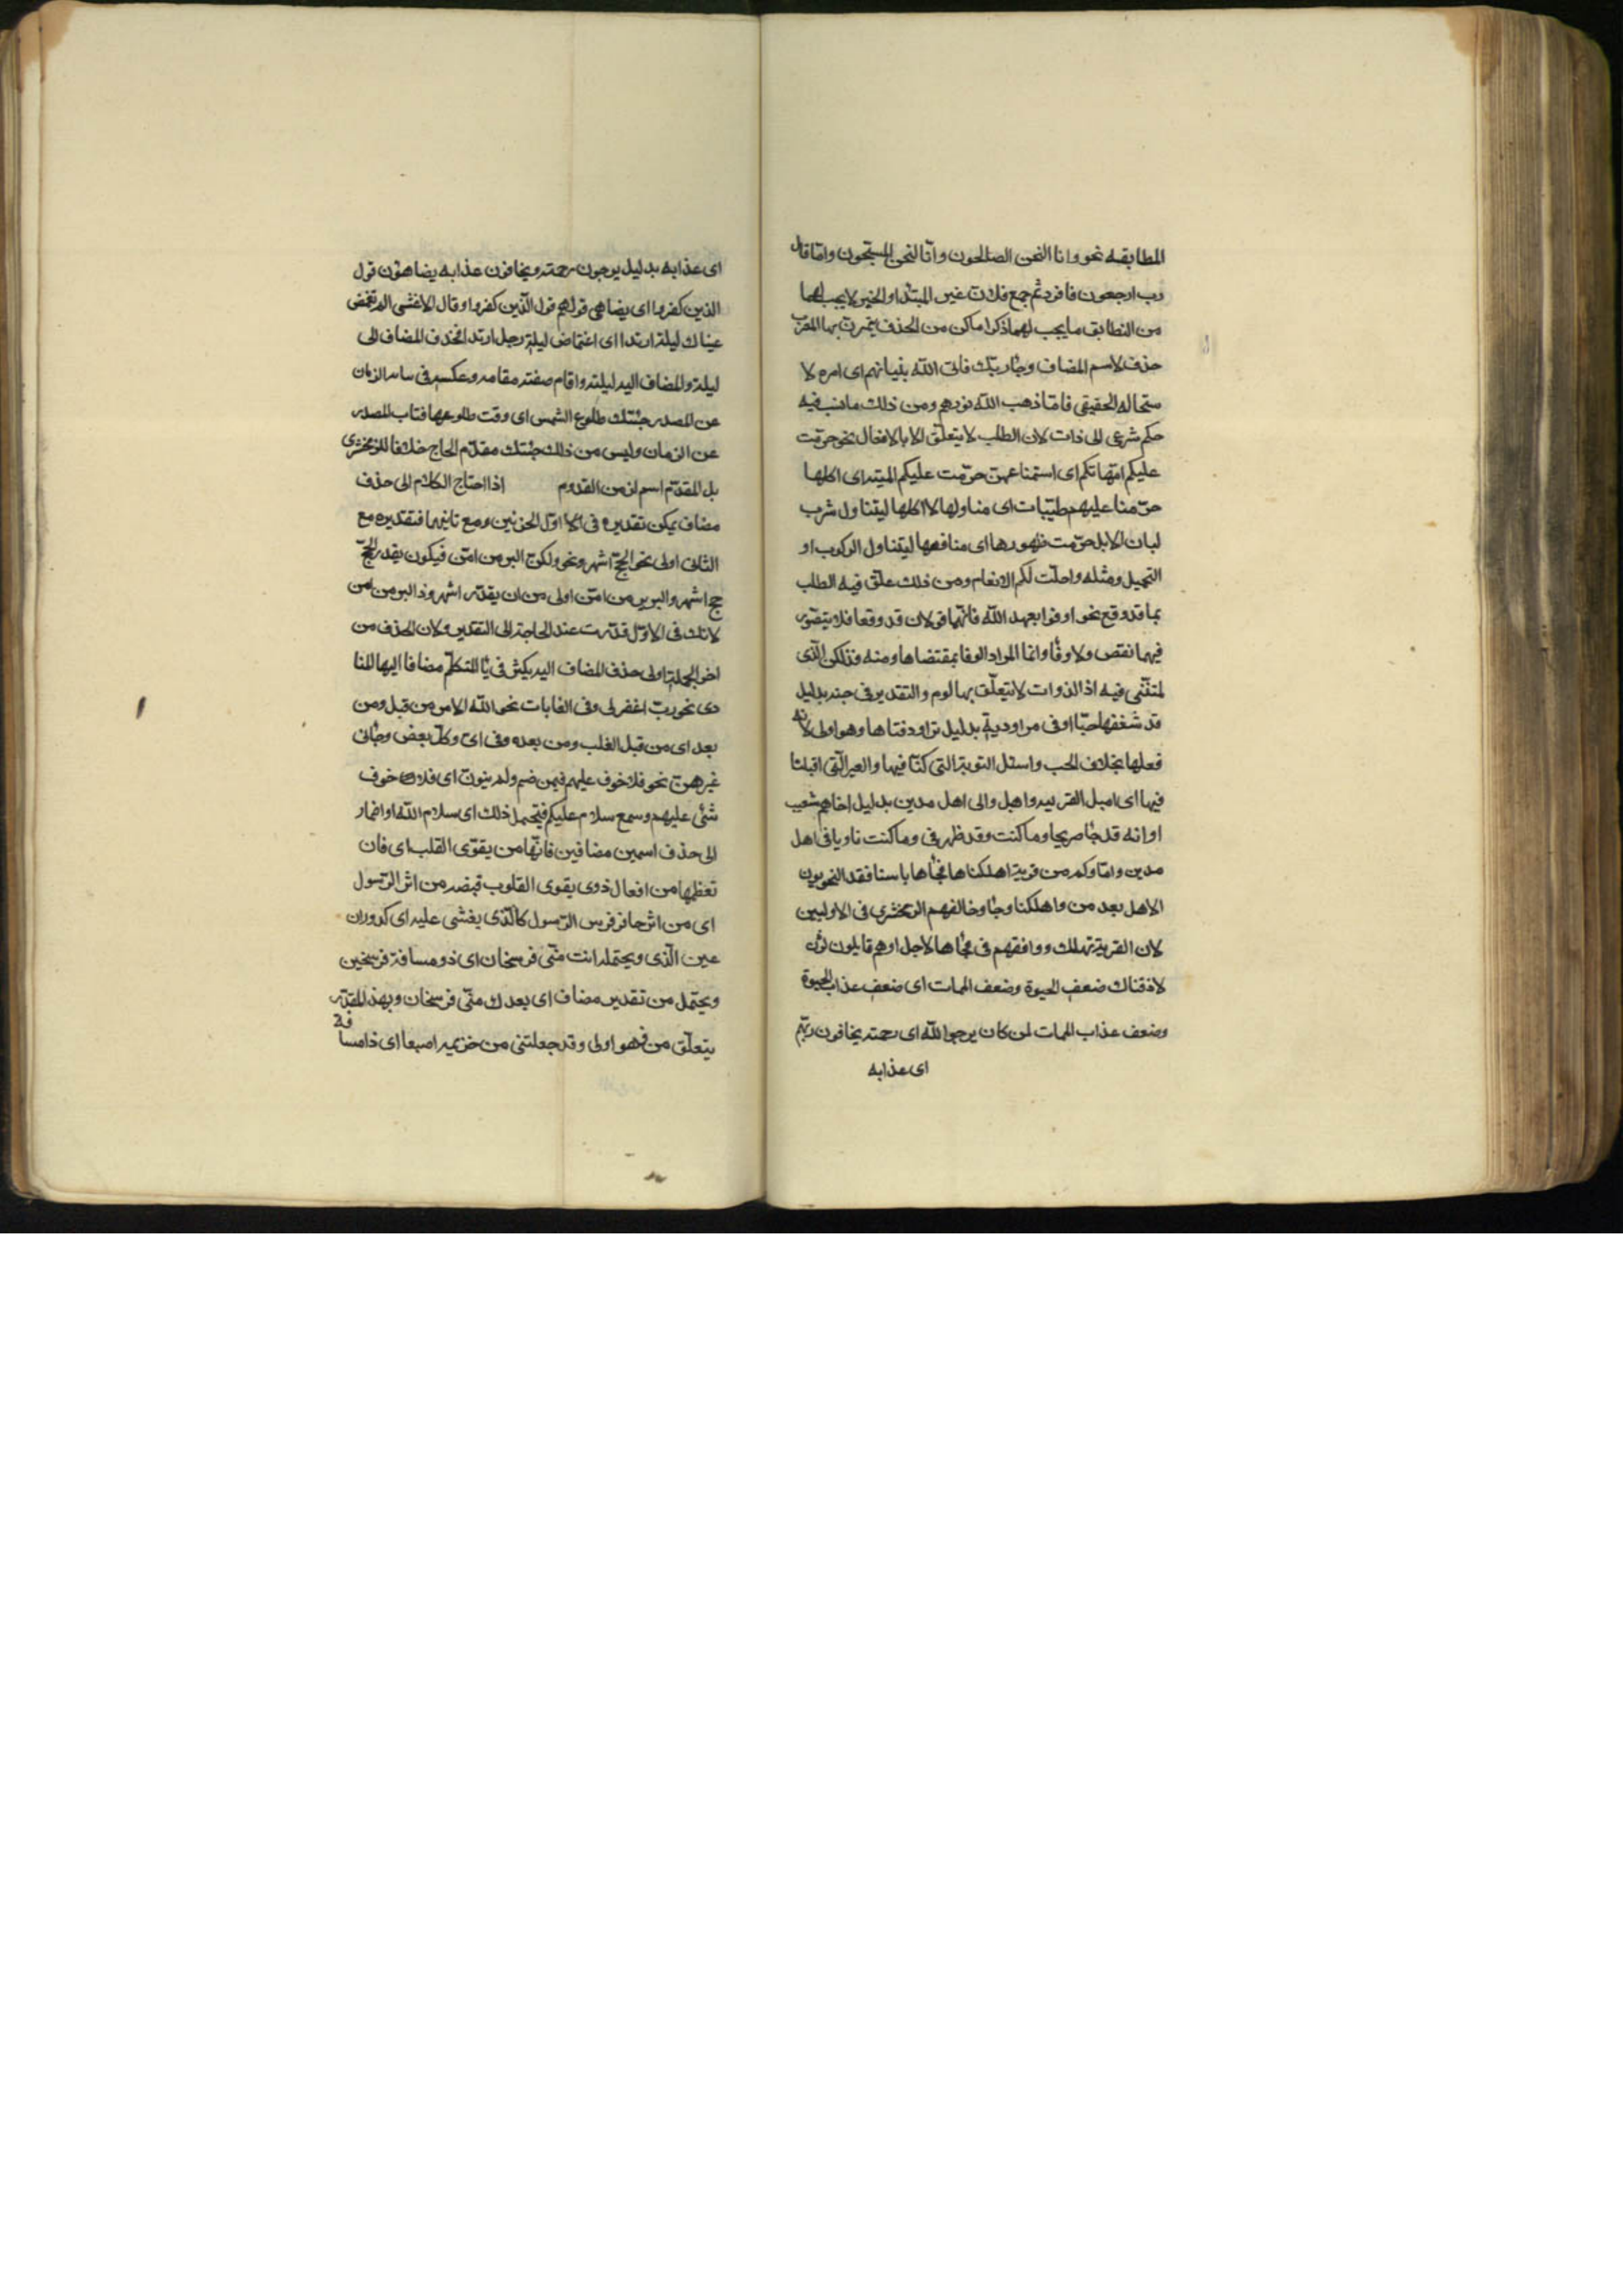 المطابقه نحو وانا النحن الصالحون وانّا لنحن المسبّحون وامّا قال
رب ارجعون فافرد ثم جمع فلان غير المبتدأ والخبر لا يجب لهما
من التطابق ما يجب لهما ذكر اماكن من الحذف يتمرن بها المعرب
حذف لاسم المضاف وجأ ربك فاتى اللّه بنيانهم اى امره لا
ستحاله الحقيقى فامّا ذهب اللّه بنورهم ومن ذلك ما نسب فيه
حكم شرعى الى ذات لان الطلب لا يتعلّق الا بالافعال نحو حرّمت
عليكم امّهاتكم اى استمتاعهن حرّمت عليكم الميته اى اكلها
حرّمنا عليهم طيّبات اى مناولها لا اكلها ليتناول شرب
لبان الابل حرّمت ظهورها اى منافعها ليتناول الركوب او
التحميل ومثله واحلّت لكم الانعام ومن ذلك علّق فيه الطلب
بما قد وقع نحو اوفوا بعهد اللّه فانّهما قولان قد وقعا فلا يتصّور
فيهما نقص ولا وفأ وانما المراد الوفا بمقتضاها ومنه فذلكن الّذى
لمتنّنى فيه اذ الذوات لا يتعلّق بها لوم والتقدير فى حبه بدليل
قد شغفها حبّا او فى مراودية بدليل تراود فتاها وهو اولى لانّه
فعلها بخلاف الحب واسئل القرية التى كنّا فيها والعير الّتى اقبلنا
فيها اى اهل القريه واهل والى اهل مدين بدليل اخاهم شعيب
او انه قد جأ صريحا وما كنت وقد ظهر فى وما كنت ثاويا فى اهل
مدين وامّا وكم من قرية اهلكناها فجأها باسنا فقد النحويون
الاهل بعد من واهلكنا وجأ وخالفهم الزمخشرى فى الاوليين
لان القرية تهلك ووافقهم فى فجأها لاجل اوهم قايلون لأن
لاذقناك ضعف الحيوة وضعف الممات اى ضعف عذاب الحيوة
وضعف عذاب الممات لمن كان يرجوا اللّه اى رحمته يخافون ربّهم
اى عذابه
اى عذابه بدليل يرجون رحمته ويخافون عذابه يضاهؤن قول
الذين كفروا اى يضاهى قولهم قول الّذين كفروا وقال الاغشى الم تغمض
عيناك ليلة ارتدا اى اغتماض ليلة رجل ارتد فحذف المضاف الى
ليلة والمضاف اليه ليلته واقام صفته مقامه وعكسه فى الزمان
عن المصدر جئتك طلوع الشمس اى وقت طلوعها فناب المصدر
عن الزمان وليس من ذلك جئتك مقدّم الحاج خلافا للزمخشرى
بل المقدّم اسم لزمن القدوم اذا احتاج الكلام الى حذف
مضاف يمكن تقديره فى اوّل الجزئين ومع ثانيهما فتقديره مع
الثانى اولى نحو الحجّ اشهر ونحو ولكن البر من امّن فيكون يقدر الحجّ
حج اشهر والبر بر من امّن اولى من ان يقدّر اشهر وذا البر من امن
لانك فى الاوّل قدّرت عند الحاجة الى التقدير ولان الحذف من
اخر الجملة اولى حذف المضاف اليه يكثر فى يأ المتكلّم مضافا اليها المنا
دى نحو ربّ اغفر لى وفى الغايات نحو اللّه الامر من قبل ومن
بعد اى من قبل الغلب ومن بعده وفى اىّ وكلّ بعض وجأ فى
غيرهنّ نحو فلا خوف عليهم فيمن ضم ولم ينون اى فلا خوف
شئى عليهم وسمع سلام عليكم فيحتمل ذلك اى سلام اللّه او اضمار
الى حذف اسمين مضافين فانّها من يقوّى القلب اى فان
تعظيمها من افعال ذوى يقوى القلوب قبضه من اثر الرّسول
اى من اثر حافر فرس الرّسول كالّذى يغشى عليه اى كدوران
عين الّذى ويحتمله انت منّى فرسخان اى ذو مسافة فرسخين
ويحتمل من تقدير مضاف اى بعدك منّى فرسخان وبهذ المقدّر
يتعلّق من فهو اولى وقد جعلتنى من خزيمه اصبعا اى ذا مسا
فة